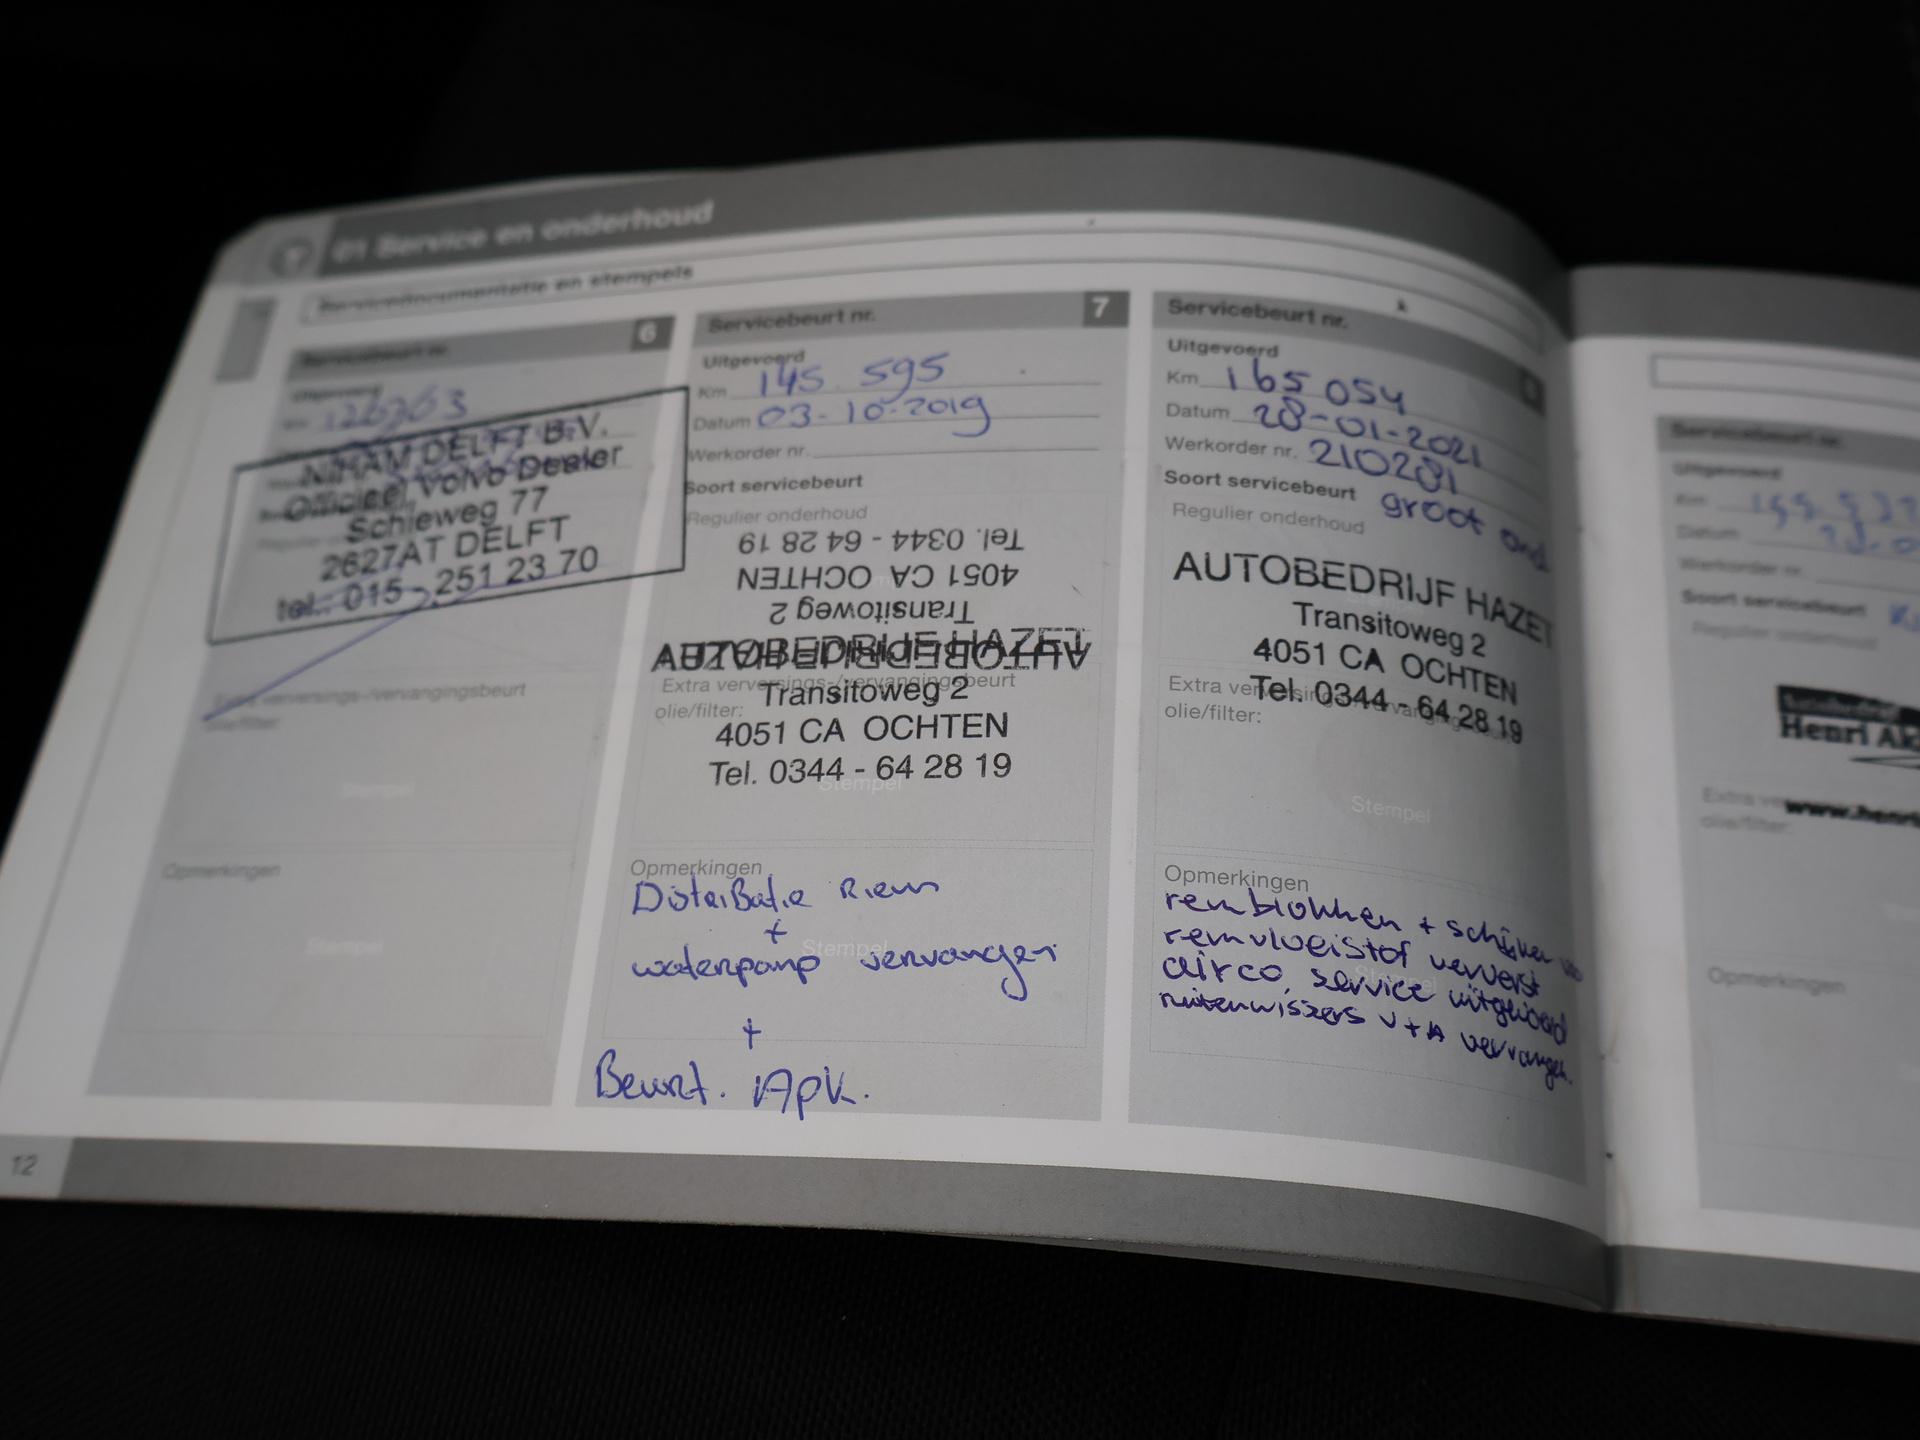 01 Service en onderhoud
Servicedocumentatie en stempels
Servicebeurt nr. 6
Uitgevoerd
Km 126363
NIHAM DELFT B.V.
Officieel Volvo Dealer
Schieweg 77
2627AT DELFT
tel.: 015 - 251 23 70
Extra verversings-/vervangingsbeurt
olie/filter:
Stempel
Opmerkingen
Stempel
12
Servicebeurt nr. 7
Uitgevoerd
Km 145 595
Datum 03-10-2019
Werkorder nr.
Soort servicebeurt
Regulier onderhoud
Tel. 0344 - 64 28 19
4051 CA OCHTEN
Transitoweg 2
AUTOBEDRIJF HAZET
AUTOBEDRIJF HAZET
Extra verversings-/vervangingsbeurt
Transitoweg 2
olie/filter:
4051 CA OCHTEN
Tel. 0344 - 64 28 19
Stempel
Opmerkingen
Distributie Riem
+
Stempel
waterpomp vervangen
+
Beurt. APK.
Servicebeurt nr.
Uitgevoerd
Km 165 054
Datum 28-01-2021
Werkorder nr. 210281
Soort servicebeurt groot ond
Regulier onderhoud
AUTOBEDRIJF HAZET
Transitoweg 2
4051 CA OCHTEN
Tel. 0344 - 64 28 19
Extra verversings-/vervangings
olie/filter:
Stempel
Opmerkingen
remblokken + schijven
remvloeistof ververst
Stempel
airco service uitgevoerd
ruitenwissers V+A vervangen.
Servicebeurt nr.
Uitgevoerd
Km
Datum
Werkorder nr.
Soort servicebeurt
Regulier onderhoud
Henri Ak
Extra ve
www.henri
olie/filter:
Opmerkingen